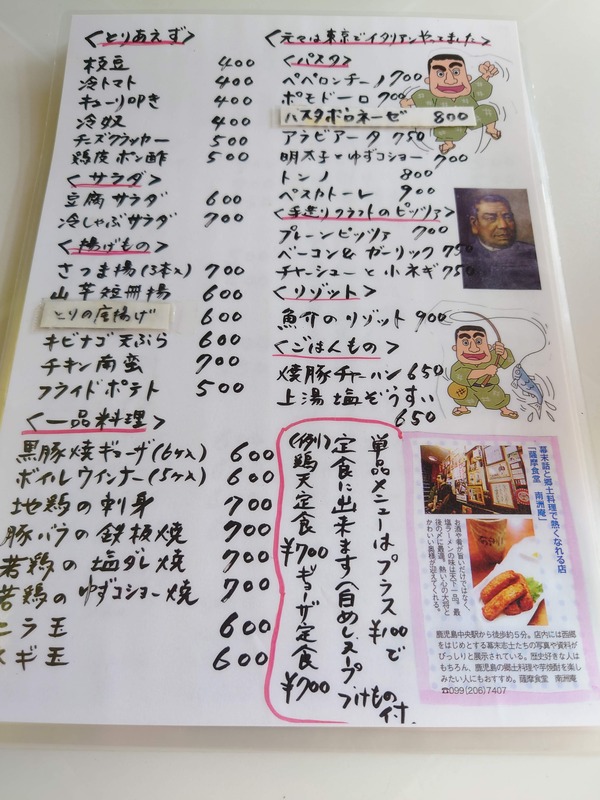 <とりあえず>
枝豆 400
冷トマト 400
キューリ叩き 400
冷奴 400
チーズクラッカー 500
鶏皮ポン酢 500
<サラダ>
豆腐サラダ 600
冷しゃぶサラダ 700
<揚げもの>
さつま揚(3本入) 700
山芋短冊揚 600
とりの唐揚げ 600
キビナゴ天ぷら 600
チキン南蛮 700
フライドポテト 500
<一品料理>
黒豚焼ギョーザ(6ヶ入) 600
ボイルウインナー(5ヶ入) 600
地鶏の刺身 700
豚バラの鉄板焼 700
若鶏の塩ダレ焼 700
若鶏のゆずコショー焼 700
ニラ玉 600
ネギ玉 600
<元々は東京でイタリアンやってました>
<パスタ>
ペペロンチーノ 700
ポモドーロ 700
パスタボロネーゼ 800
アラビアータ 750
明太子とゆずコショー 700
トンノ 800
ペスカトーレ 900
<手造りクラフトのピッツァ>
プレーンピッツァ 700
ベーコン&ガーリック 750
チャーシューと小ネギ 750
<リゾット>
魚介のリゾット 900
<ごはんもの>
焼豚チャーハン 650
上湯塩ぞうすい
650
単品メニューはプラス¥100で
定食に出来ます(白めしスープ
つけもの付
(例)鶏天定食 ¥700 ギョーザ定食 ¥700
幕末話と郷土料理で熱くなれる店
「薩摩食堂 南洲庵」
お酒や肴が旨いだけではなく、
塩ラーメンの味は天下一品。最
後の〆に最適。熱い心の大将と
かわいい奥様が迎えてくれる。
鹿児島中央駅から徒歩約5分。店内には西郷
をはじめとする幕末志士たちの写真や資料が
びっしりと展示されている。歴史好きな人は
もちろん、鹿児島の郷土料理や芋焼酎を楽し
みたい人にもおすすめ。薩摩食堂 南洲庵
☎099(206)7407